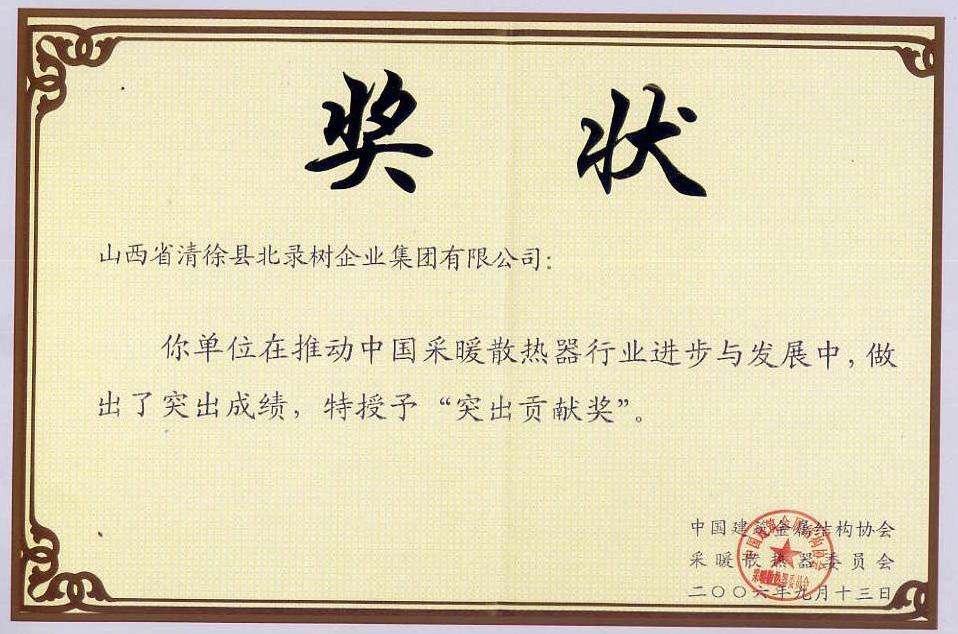 奖状
山西省清徐县北录树企业集团有限公司：
你单位在推动中国采暖散热器行业进步与发展中，做
出了突出成绩，特授予“突出贡献奖”。
中国建筑金属结构协会
采暖散热器委员会
二〇〇六年九月十三日
中国建筑金属结构协会
采暖散热器委员会